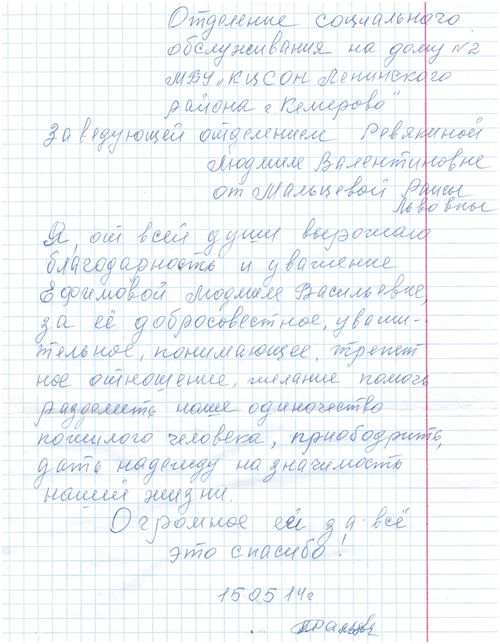 Отделение социального
обслуживания на дому №2
МБУ „КЦСОН Ленинского
района г. Кемерово"
Заведующей отделением Ревякиной
Людмиле Валентиновне
от Мальцевой Раисы
Львовны
Я, от всей души выражаю
благодарность и уважение
Ефимовой Людмиле Васильевне,
за её добросовестное, уважи-
тельное, понимающее, трепет
ное отношение, желание помочь
разделить наше одиночество
пожилого человека, приободрить,
дать надежду на значимость
нашей жизни.
Огромное ей за всё
это спасибо!
15 05 14г